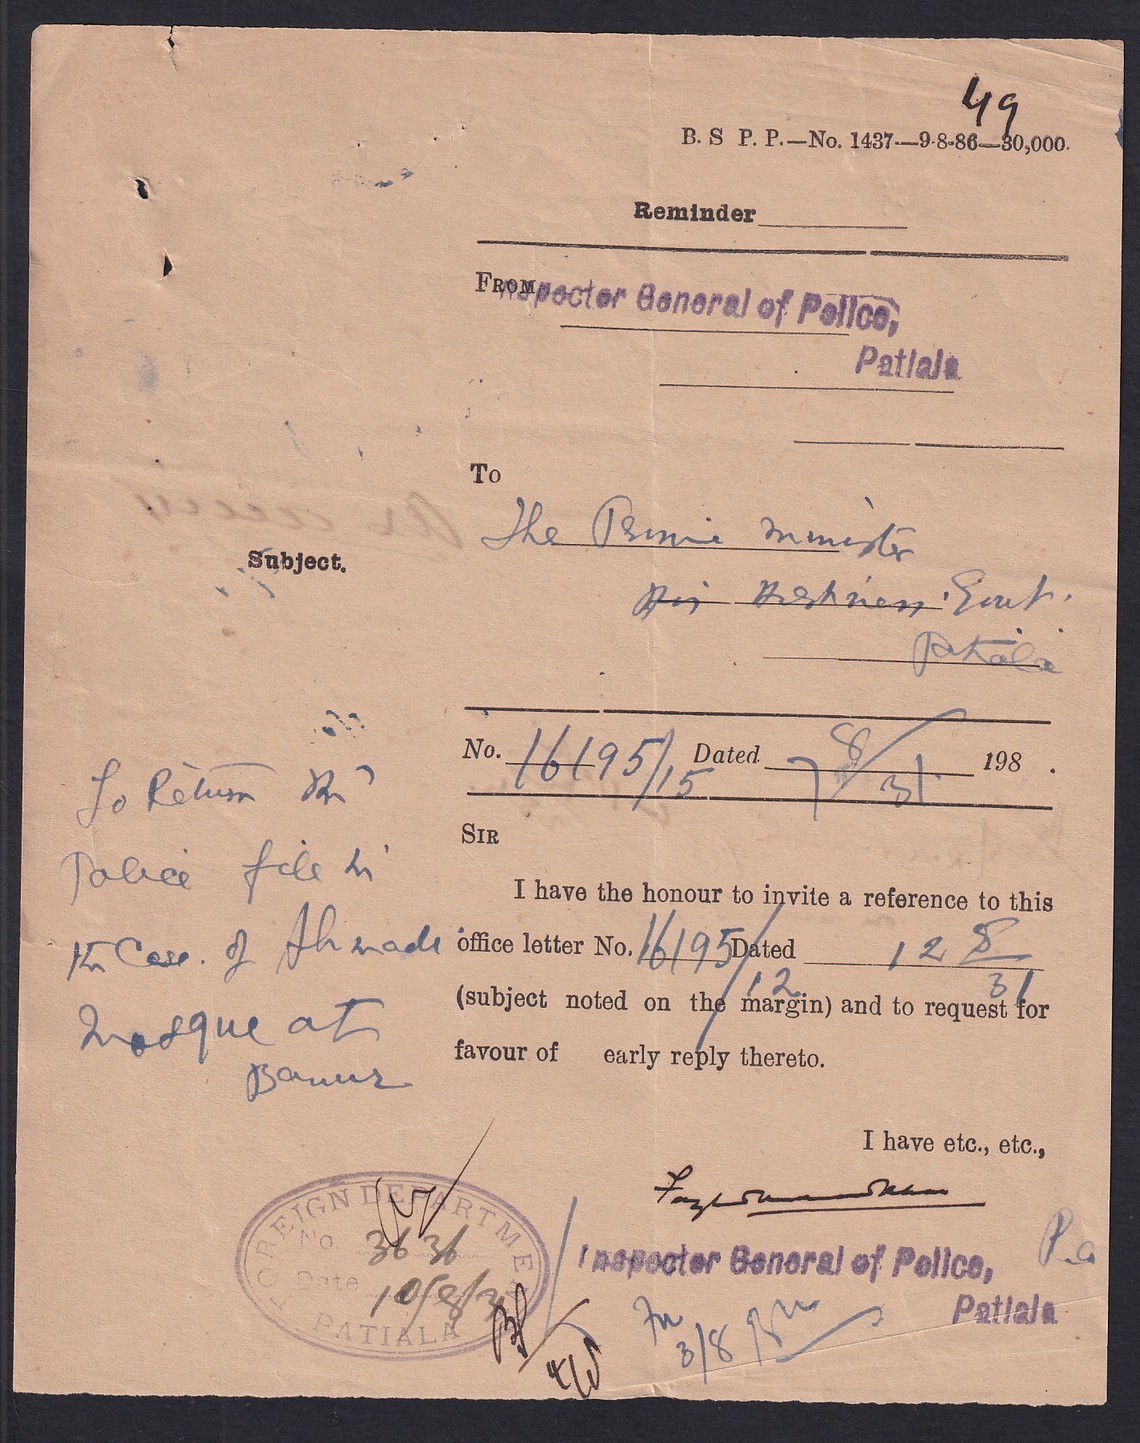 49
B. S P. P.—No. 1437—9-8-86—30,000.
Reminder
FROM
Inspector General of Police,
Patiala
To
The Prime Minister
His Highness' Govt.
Patiala
Subject.
No. 16195/15 Dated 7/8/31 198 .
To Return
Police file in
the Case. of Ahmadi
Mosque at
Banur
SIR
I have the honour to invite a reference to this
office letter No. 16195/12 Dated 12 8/31
(subject noted on the margin) and to request for
favour of early reply thereto.
I have etc., etc.,
Inspector General of Police,
Patiala
FOREIGN DEPARTMENT
No. 3636
Date 10/8/31
PATIALA
3/8